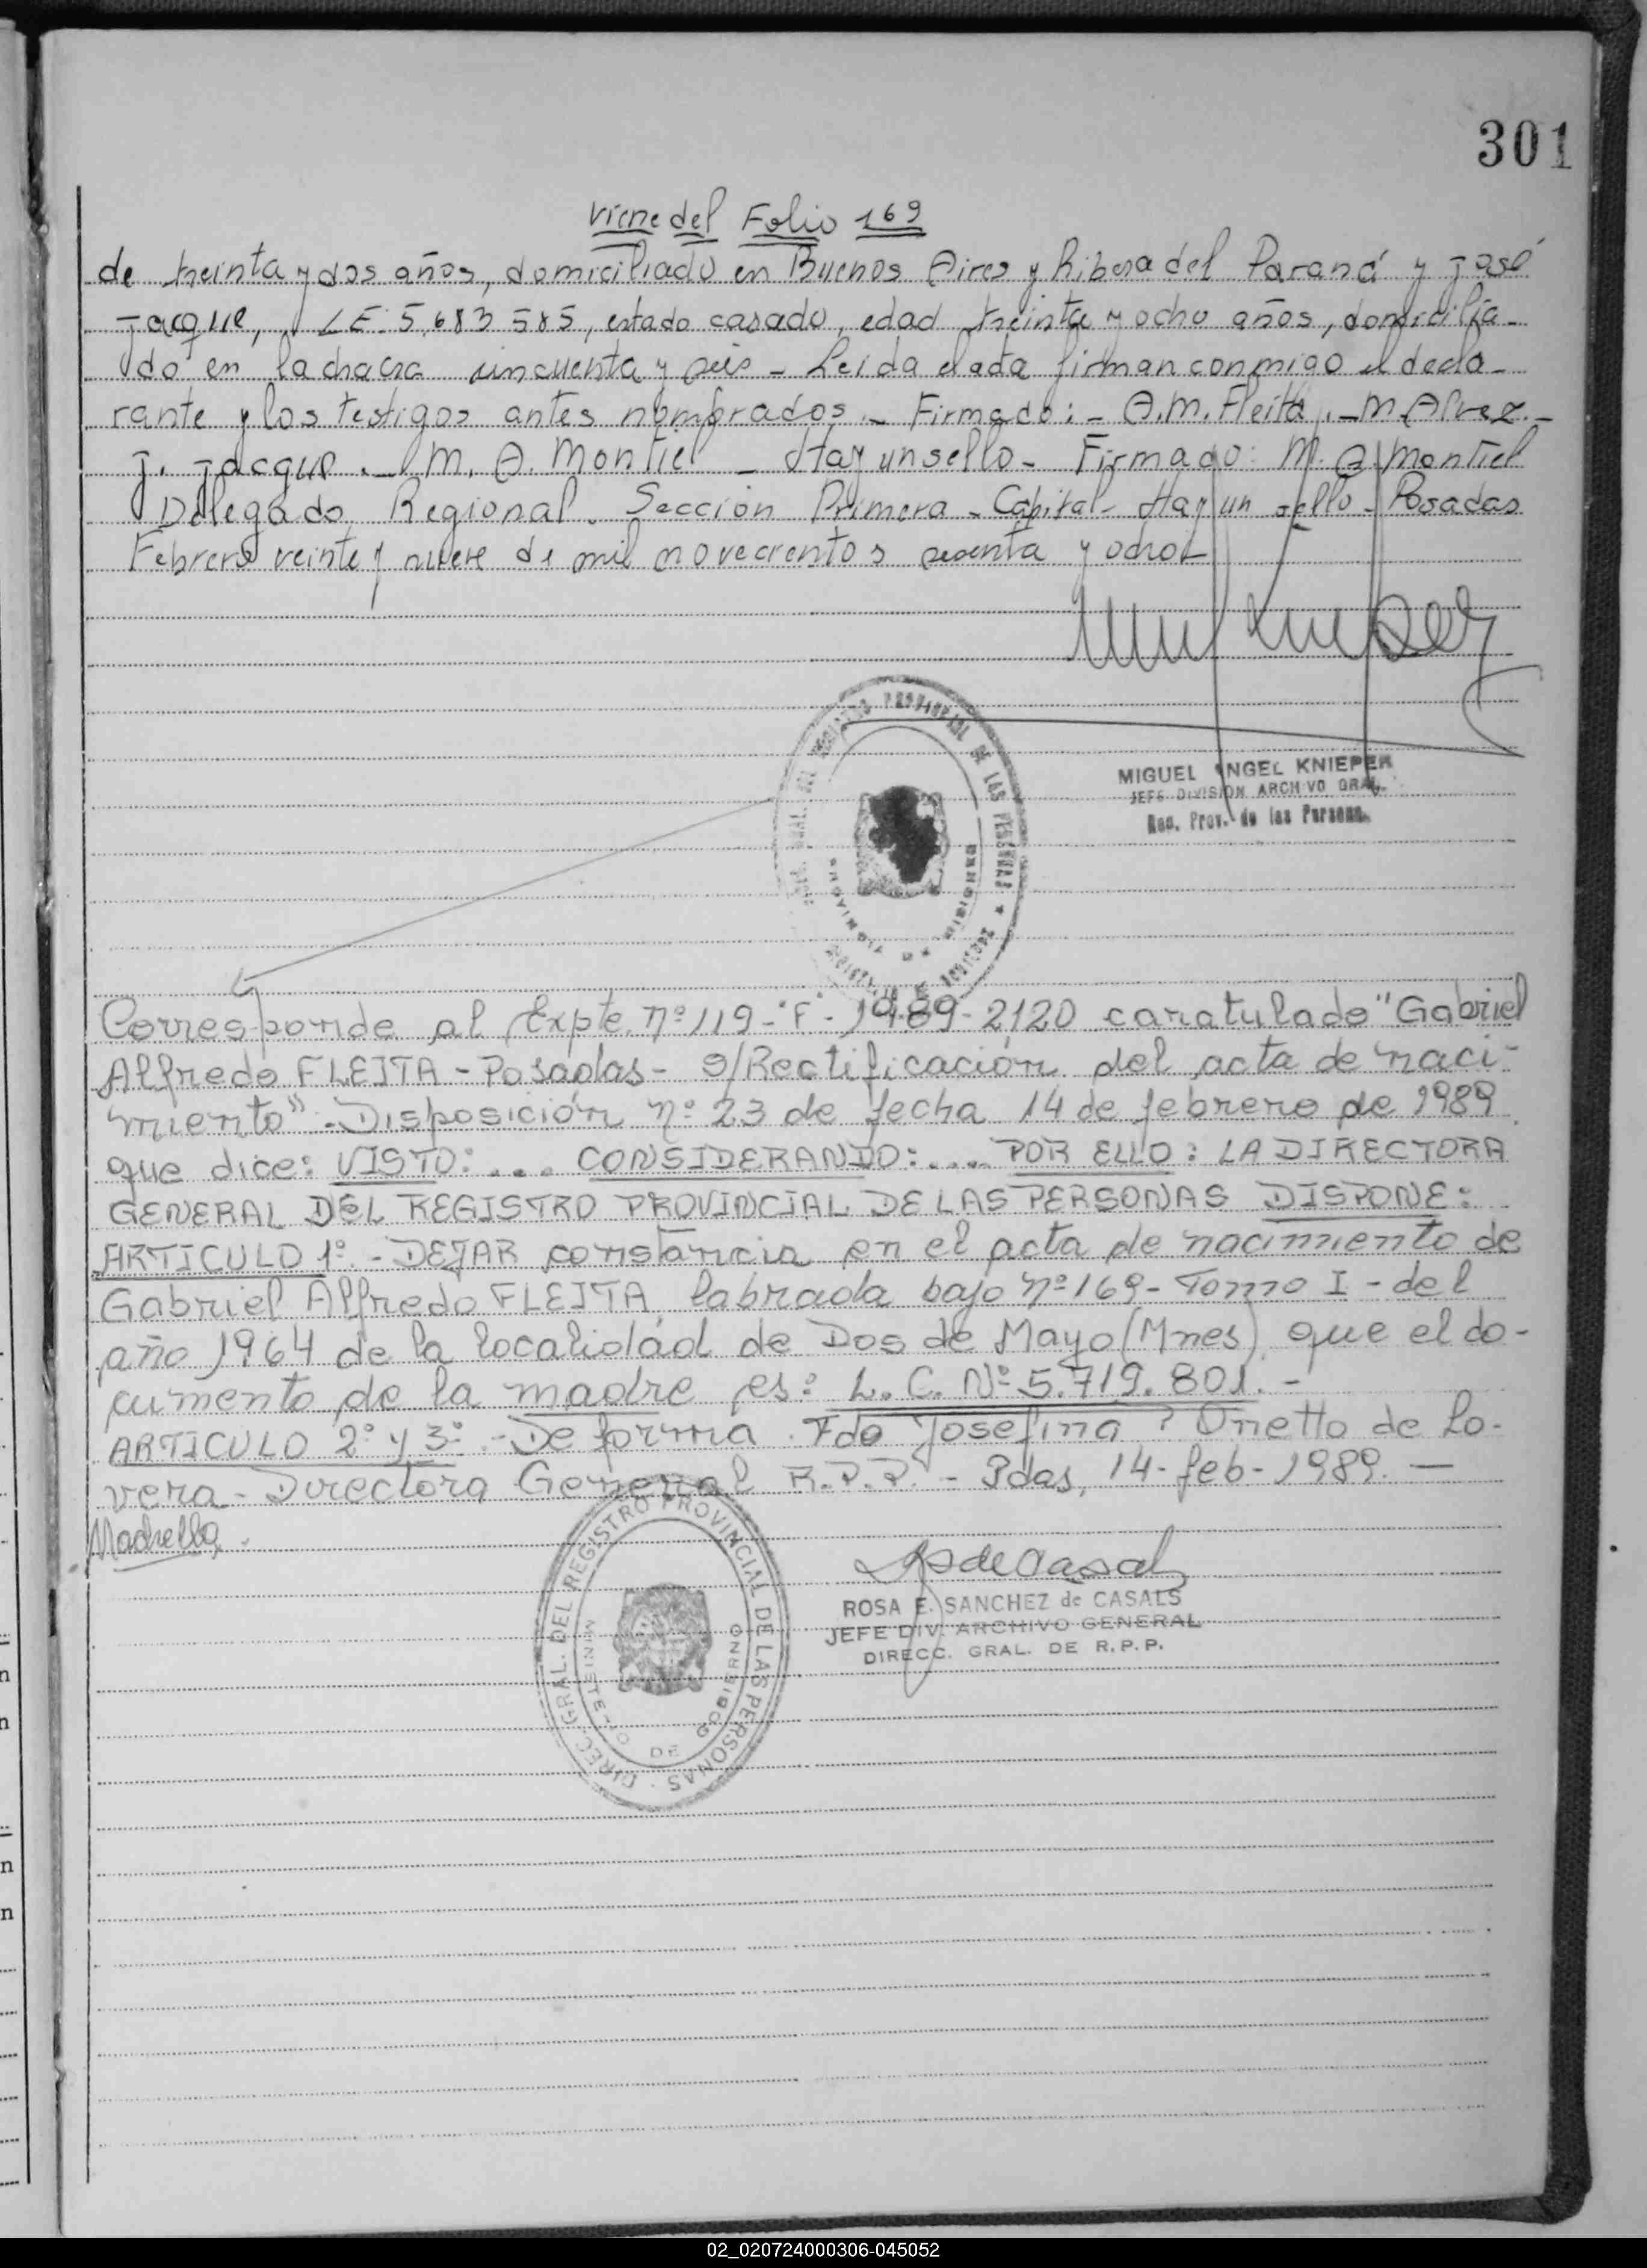 301
Viene del Folio 169
de treinta y dos años, domiciliado en Buenos Aires y Ribera del Paraná y José
Jacque, LE: 5.683 585, estado casado, edad treinta y ocho años, domicilia-
do en la chacra cincuenta y seis - Leida el acta firman conmigo el decla-
rante y los testigos antes nombrados. - Firmado: - A.M. Fleita. - M. Alvez. -
J. Jacque. - M. A. Montiel - Hay un sello - Firmado: M. A. Montiel
Delegado Regional. Sección Primera - Capital - Hay un sello - Posadas
Febrero veinte y nueve de mil novecientos sesenta y ocho -
MIGUEL ANGEL KNIEPER
JEFE DIVISION ARCHIVO GRAL.
Reg. Prov. de las Persona.
REGISTRO PROVINCIAL DE LAS PERSONAS
Corresponde al Expte. nº 119 - "F" - 1989 - 2120 caratulado "Gabriel
Alfredo FLEITA - Posadas - s/Rectificación del acta de naci-
miento" - Disposición nº 23 de fecha 14 de febrero de 1989
que dice: VISTO: .... CONSIDERANDO: .... POR ELLO: LA DIRECTORA
GENERAL DEL REGISTRO PROVINCIAL DE LAS PERSONAS DISPONE:
ARTICULO 1º. - DEJAR constancia en el acta de nacimiento de
Gabriel Alfredo FLEITA, labrada bajo nº 169 - Tomo I - del
año 1964 de la localidad de Dos de Mayo (Mnes), que el do-
cumento de la madre es: L. C. Nº 5.719.801. -
ARTICULO 2º y 3º. - De forma. Fdo Josefina P Onetto de Lo-
vera - Directora General R.P.P. - Pdas, 14 - feb - 1989. -
DIREC. GRAL. DEL REGISTRO PROVINCIAL DE LAS PERSONAS
MINISTERIO DE GOBIERNO
ROSA E. SANCHEZ de CASALS
JEFE DIV. ARCHIVO GENERAL
DIRECC. GRAL. DE R.P.P.
02_020724000306-045052